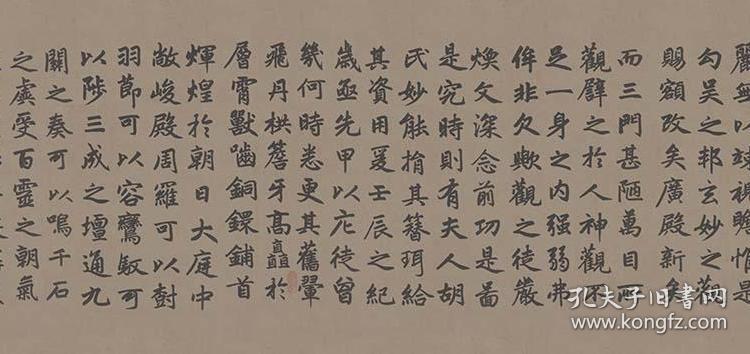 麗無以竦視瞻惟是
勾吳之邦玄妙之觀
賜額改矣廣殿新矣
而三門甚陋萬目所
觀譬之於人神觀不
足一身之內强弱弗
侔非欠歟觀之徒嚴
煥文深念前功是啚
是究時則有夫人胡
氏妙能捐其簪珥給
其資用爰壬辰之紀
歲亟先甲以庀徒曾
幾何時悉更其舊翬
飛丹栱簷牙高矗於
層霄獸嚙銅鐶鋪首
輝煌於朝日大庭中
敞峻殿周羅可以樹
羽節可以容鸞馭可
以陟三成之壇通九
關之奏可以鳴千石
之虡受百靈之朝氣
孔夫子旧书网
www.kongfz.com